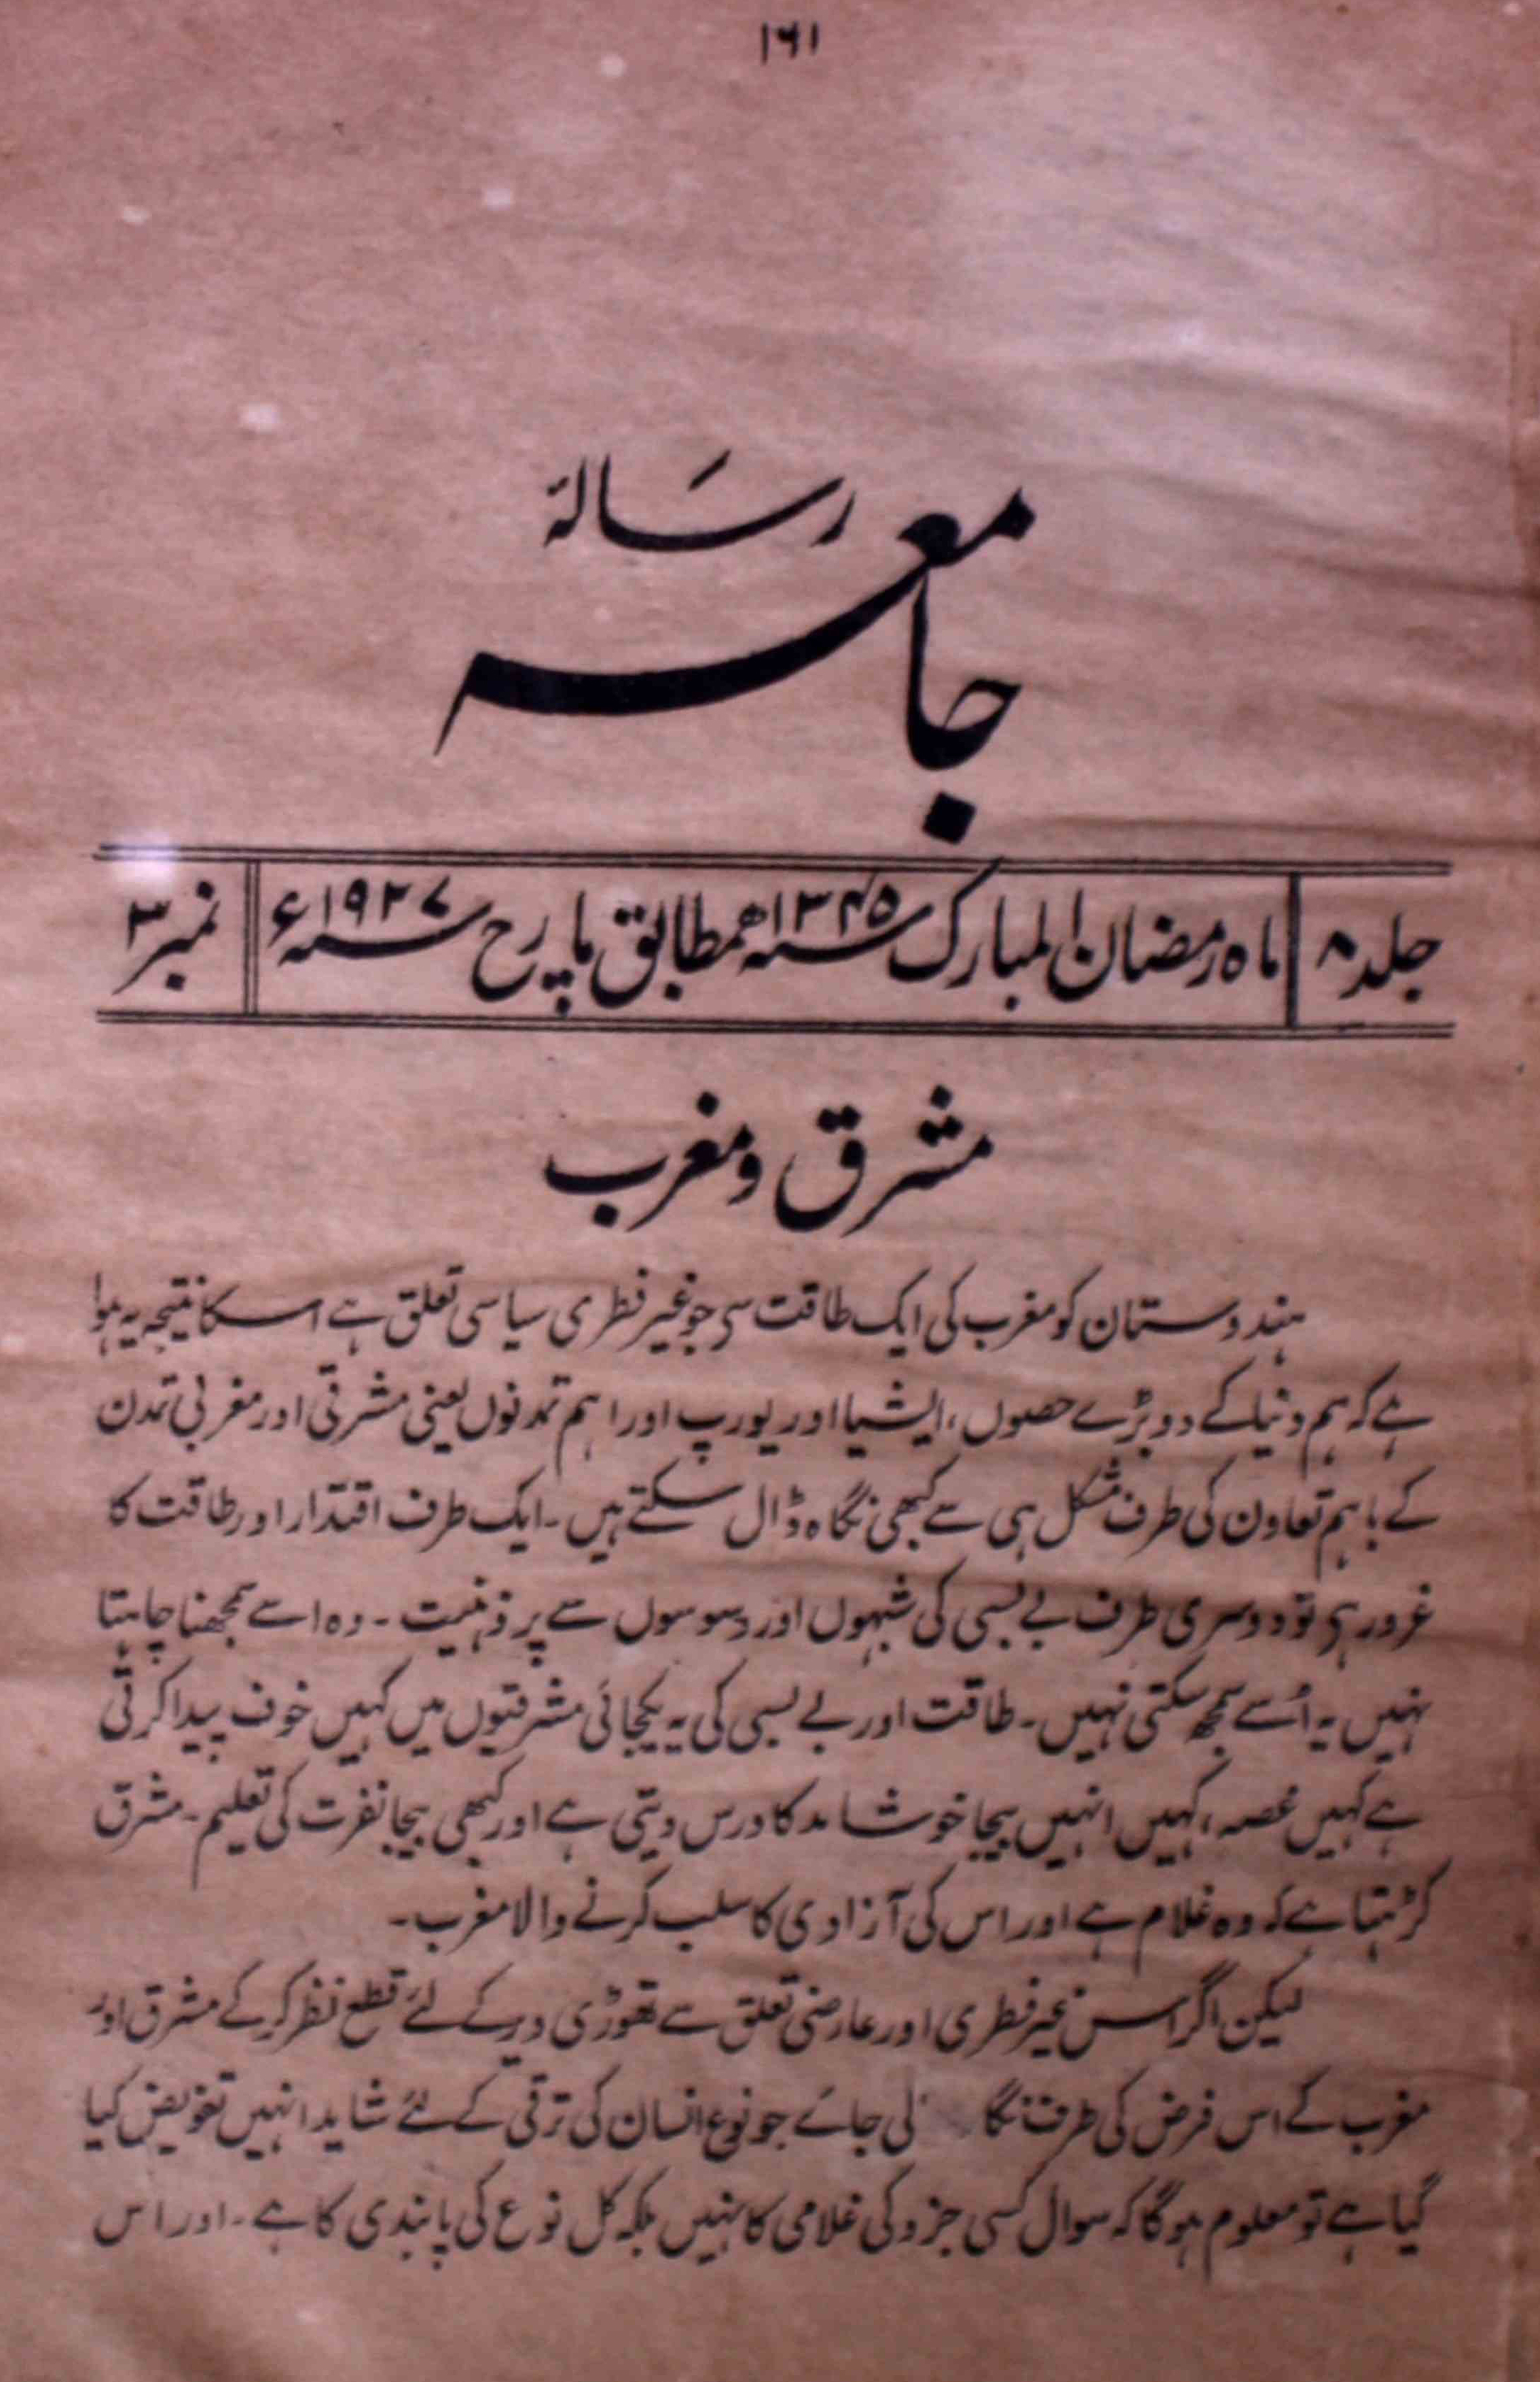 ۱۶۱
رسالۂ
جامعہ
جلد ۸ ماہ رمضان المبارک سنہ ۱۳۴۵ھ مطابق مارچ سنہ ۱۹۲۷ء نمبر ۳
مشرق و مغرب
ہندوستان کو مغرب کی ایک طاقت سے جو غیر فطری سیاسی تعلق ہے اسکا نتیجہ یہ ہوا
ہے کہ ہم دنیا کے دو بڑے حصوں، ایشیا اور یورپ اور اہم تمدنوں یعنی مشرقی اور مغربی تمدن
کے باہم تعاون کی طرف مشکل ہی سے کبھی نگاہ ڈال سکتے ہیں۔ ایک طرف اقتدار اور طاقت کا
غرور ہی تو دوسری طرف بے بسی کی شبہوں اور وسوسوں سے پر ذہنیت۔ وہ اسے سمجھنا چاہتا
نہیں یہ اُسے سمجھ سکتی نہیں۔ طاقت اور بے بسی کی یہ یکجائی مشرقیوں میں کہیں خوف پیدا کرتی
ہے کہیں غصہ، کہیں انہیں بیجا خوشامد کا درس دیتی ہے اور کبھی بیجا نفرت کی تعلیم۔ مشرق
کڑہتا ہے کہ وہ غلام ہے اور اس کی آزادی کا سلب کرنے والا مغرب۔
لیکن اگر اس غیر فطری اور عارضی تعلق سے تھوڑی دیر کے لئے قطع نظر کر کے مشرق اور
مغرب کے اس فرض کی طرف نگا لی جائے جو نوع انسان کی ترقی کے لئے شاید انہیں تفویض کیا
گیا ہے تو معلوم ہو گا کہ سوال کسی جزو کی غلامی کا نہیں بلکہ کل نوع کی پابندی کا ہے۔ اور اس